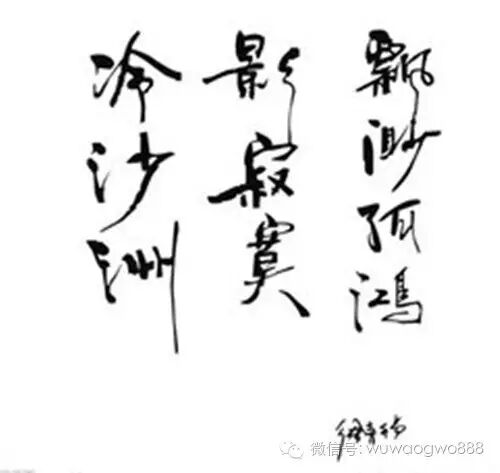 飘渺孤鸿
影寂寞
冷沙洲
微信号: wuwaogwo888